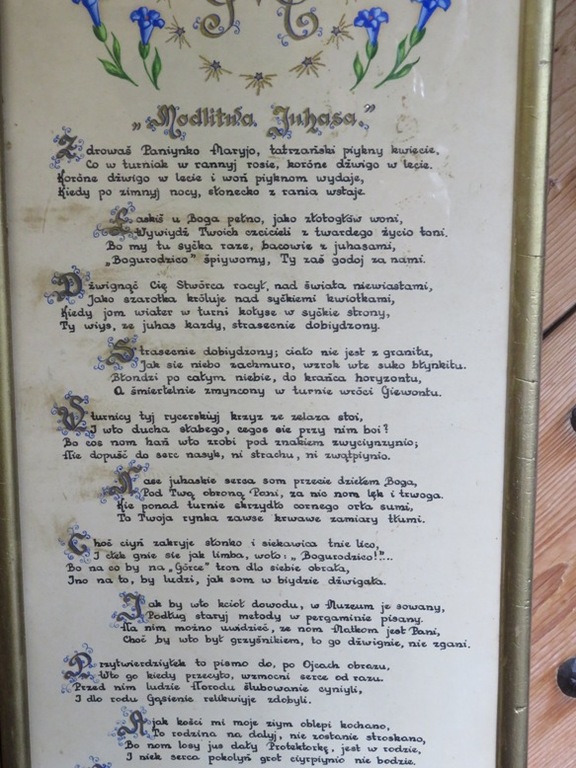 „Modlitwa Juhasa."
Zdrowaś Paniynko Maryjo, tatrzański piykny kwiecie.
Co w turniak w rannyj rosie, koróne dźwigo w lecie.
Koróne dźwigo w lecie i woń piyknom wydaje,
Kiedy po zimnyj nocy, słonecko z rania wstaje.
Łaskiś u Boga pełno, jako złotogłów woni,
Wywiydź Twoich czcicieli z twardego życio toni.
Bo my tu syćka raze, bacowie z juhasami,
„Bogurodzico" śpiywomy, Ty zaś godoj za nami.
Dźwignąć Cię Stwórca racył, nad świata niewiastami,
Jako szarotka króluje nad syćkiemi kwiotkami,
Kiedy jom wiater w turni kołyse w syćkie strony,
Ty wiys, ze juhas kazdy, strasecnie dobiydzony.
Strasecnie dobiydzony; ciało nie jest z granitu,
Jak sie niebo zachmuro, wzrok wte suko błynkitu.
Błondzi po całym niebie, do krańca horyzontu,
A śmiertelnie zmyncony w turnie wróci Giewontu.
Sturnicy tyj rycerskiyj krzyz ze zelaza stoi,
I wto ducha słabego, cegos sie przy nim boi?
Bo cos nom hań wto zrobi pod znakiem zwyciynzynio;
Nie dopuść do serc nasyk, ni strachu, ni zwątpiynio.
Nase juhaskie serca som przecie dziełem Boga,
Pod Twą obroną Pani, za nic nom lęk i trwoga.
Kie ponad turnie skrzydło cornego orła sumi,
To Twoja rynka zawse krwawe zamiary tłumi.
Choć ciyń zakryje słonko i siekawica tnie lico,
I cłek gnie sie jak limba, woło: „Bogurodzico!"...
Bo na co by na „Górce" tron dlo siebie obrała,
Ino na to, by ludzi, jak som w biydzie dźwigała.
Jak by wto kcioł dowodu, w Muzeum je sowany,
Podług staryj metody w pergaminie pisany.
Na nim mozno uwidzieć, ze nom Matkom jest Pani,
Choć by wto był grzyśnikiem, to go dźwignie, nie zgani.
Przytwierdziyłek to pismo do, po Ojcach obrazu,
Wto go kiedy przecyto, wzmocni serce od razu.
Przed nim ludzie Narodu ślubowanie cyniyli,
I dlo rodu Gąsienie relikwiyje zdobyli.
A jak kości mi moje ziym oblepi kochano,
To rodzina na dalyj, nie zostanie stroskano,
Bo nom losy jus dały Protektorkę, jest w rodzie,
I niek serca pokolyń grot ciyrpiynio nie bodzie.